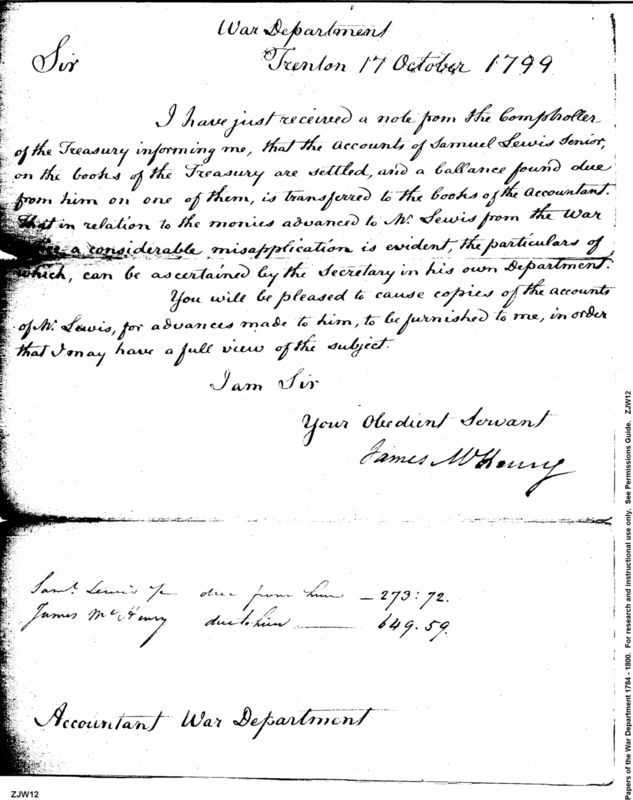 War Department
Sir
Trenton 17 October 1799
I have just received a note from the Comptroller
of the Treasury informing me, that the Accounts of Samuel Lewis Senior,
on the books of the Treasury are settled, and a ballance found due
from him on one of them, is transferred to the books of the Accountant.
That in relation to the monies advanced to Mr. Lewis from the War
a considerable misapplication is evident, the particulars of
which, can be ascertained by the Secretary in his own Department.
You will be pleased to cause copies of the accounts
of Mr. Lewis, for advances made to him, to be furnished to me, in order
that I may have a full view of the subject.
I am Sir
Your Obedient Servant
James McHenry
Saml. Lewis due from him — 273:72.
James McHenry due to him — 649.59.
Accountant War Department
ZJW12
Papers of the War Department 1784 - 1800. For research and instructional use only. See Permissions Guide. ZJW12